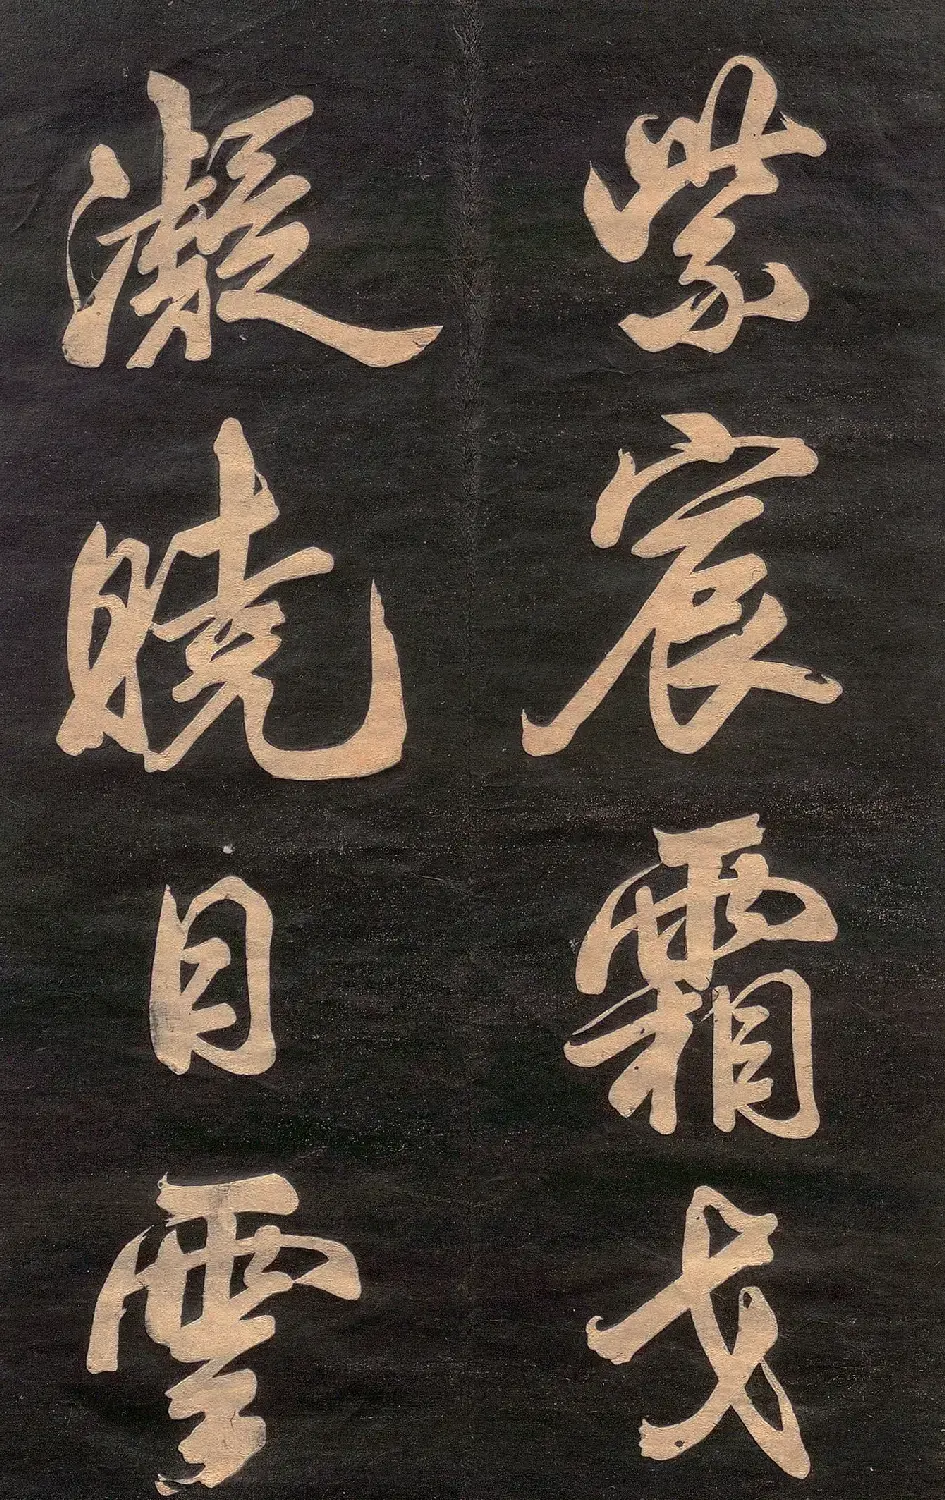 紫宸霜戈
凝曉日雲